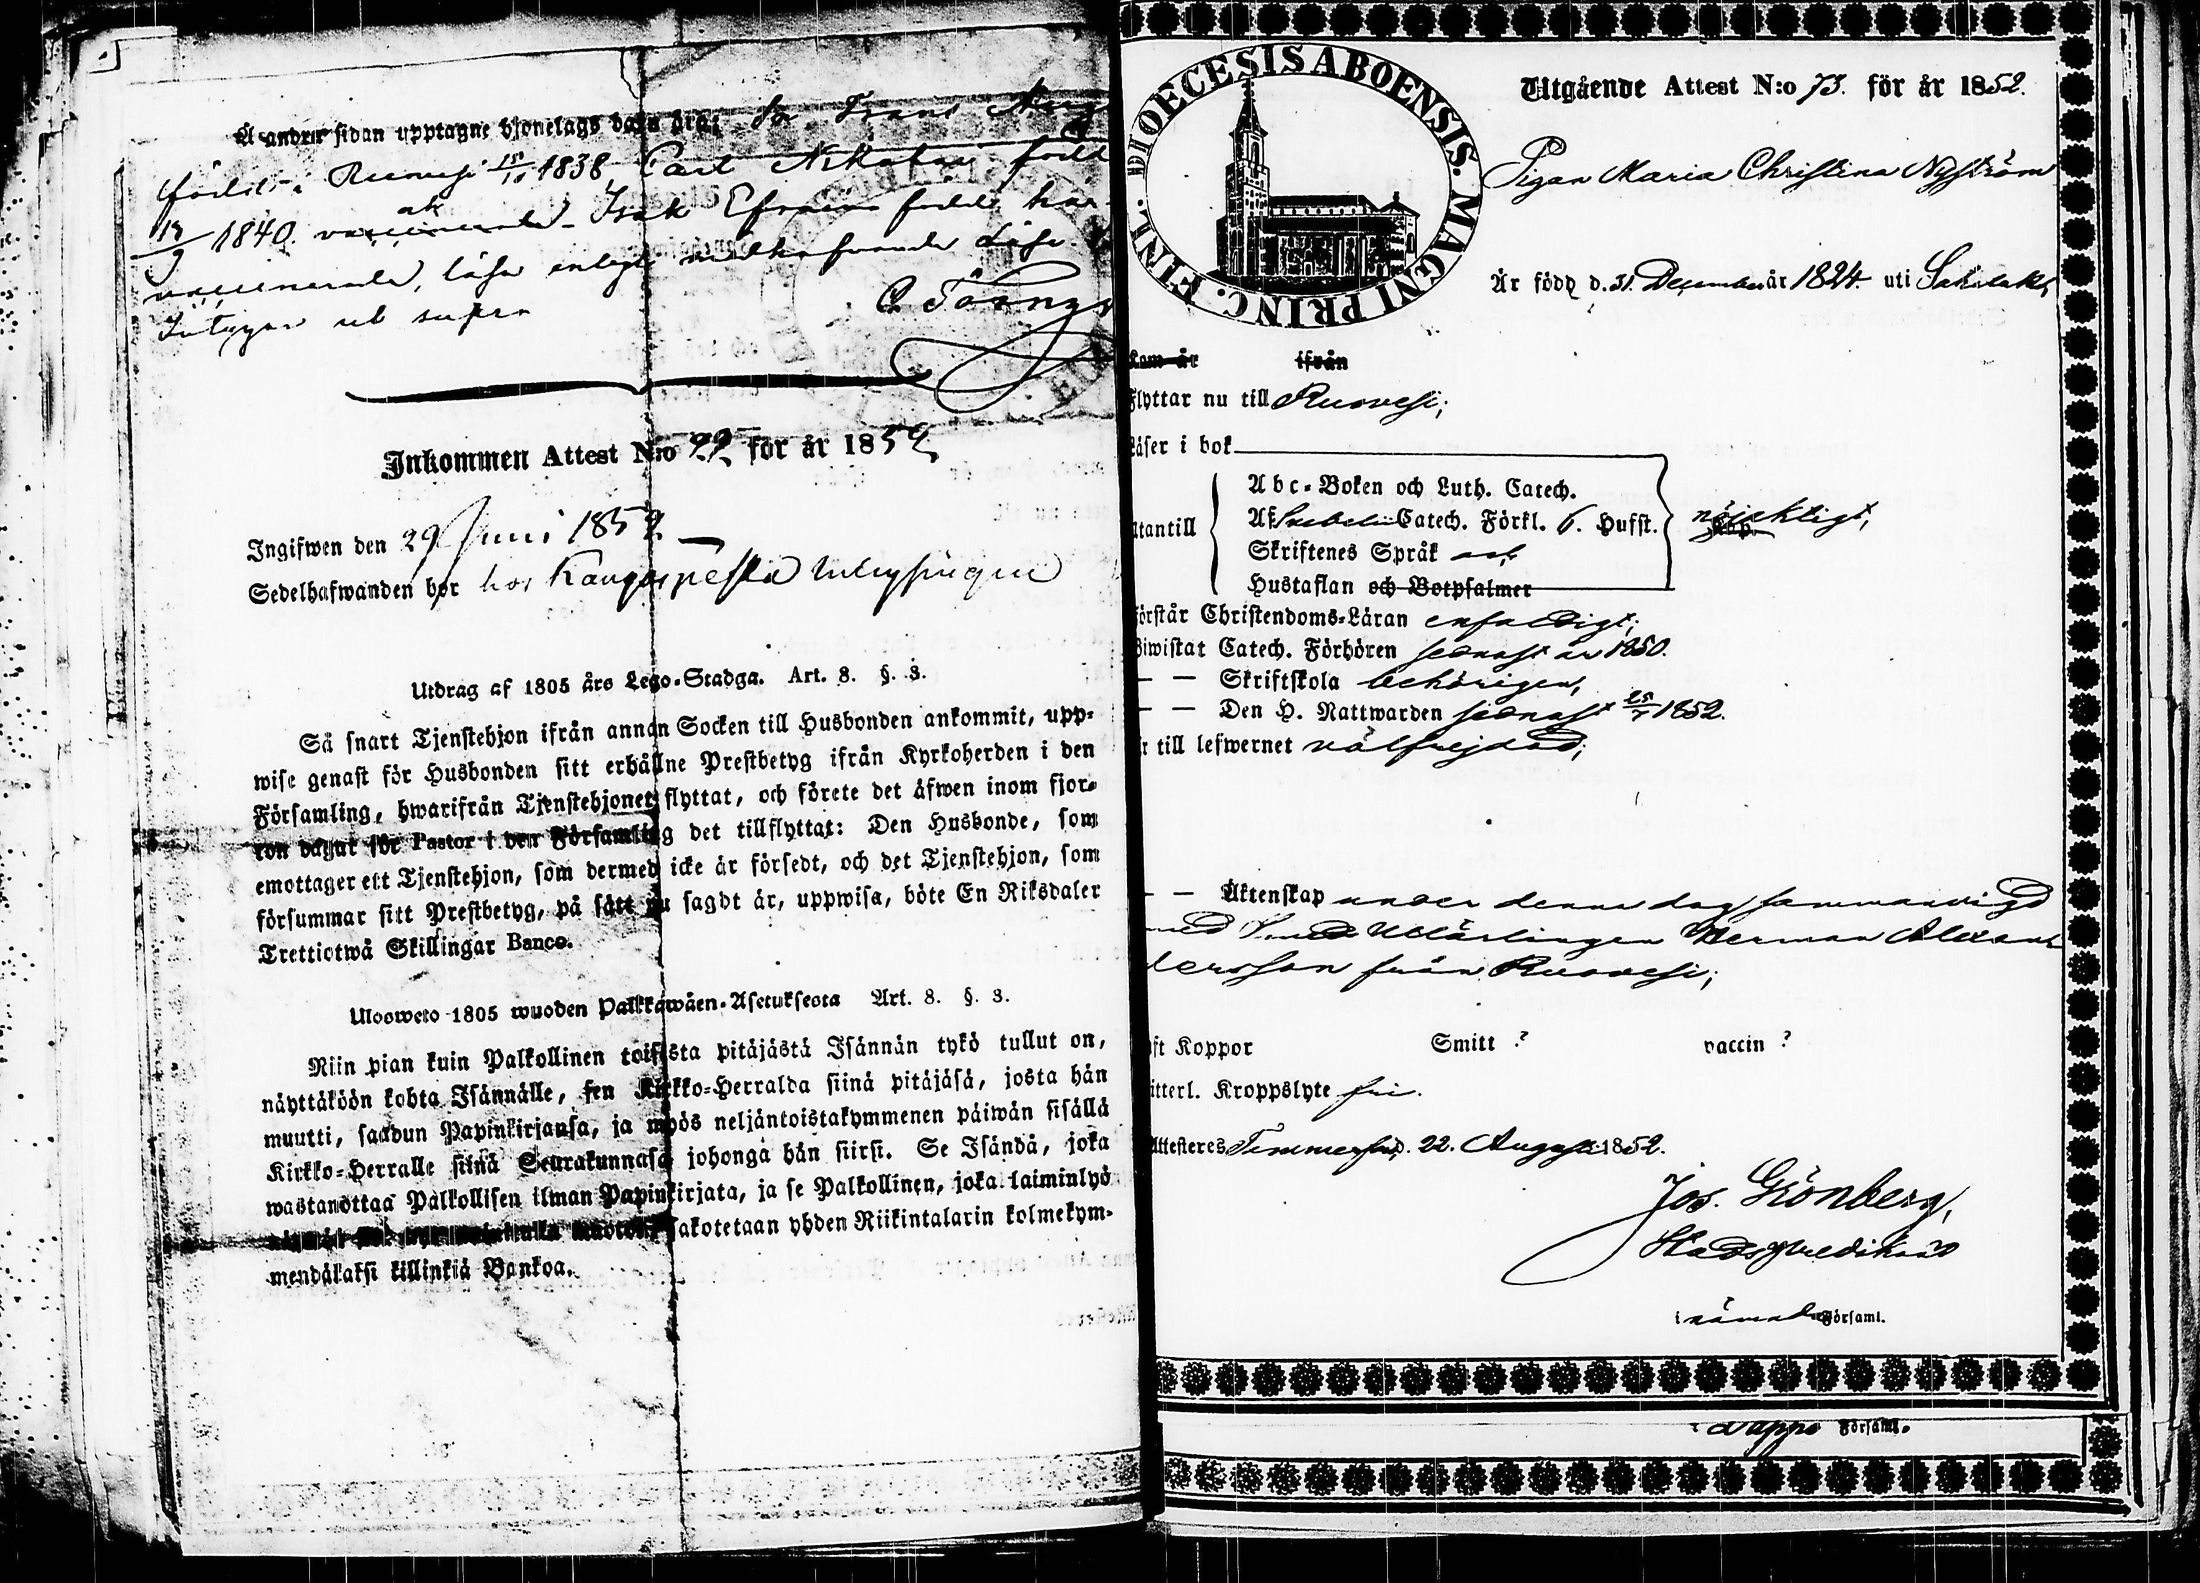 Å andra sidan upptagne hjonelags barn äro:
född i Ruovesi 15/10 1838, Carl Nikolai född
1840. vaccinerade - Isak Efraim född här
vaccinerade, läser enligt
Intygar ut supra
Inkommen Attest N:o 22 för år 1852
Ingifwen den 29 Juni 1852
Sedelhafwanden bor hos
Utdrag af 1805 års Lego-Stadga. Art. 8. §. 3.
Så snart Tjenstehjon ifrån annan Socken till Husbonden ankommit, upp-
wise genast för Husbonden sitt erhållne Prestbetyg ifrån Kyrkoherden i den
Församling, hwarifrån Tjenstehjonet flyttat, och förete det äfwen inom fjor-
ton dagar för Pastor i den Församling det tillflyttat: Den Husbonde, som
emottager ett Tjenstehjon, som dermed icke är försedt, och det Tjenstehjon, som
försummar sitt Prestbetyg, på sätt nu sagdt är, uppwisa, böte En Riksdaler
Trettiotwå Skillingar Banco.
Ulosweto 1805 wuoden Palkkawäen-Asetuksesta Art. 8. §. 3.
Niin pian kuin Palkollinen toisesta pitäjästä Isännän tykö tullut on,
näyttäköön kohta Isännälle, sen Kirkko-Herralda siinä pitäjäsä, josta hän
muutti, saadun Papinkirjansa, ja myös neljäntoistakymmenen päiwän sisällä
Kirkko-Herralle siinä Seurakunnasa johonga hän siirsi. Se Isändä, joka
wastanottaa Palkollisen ilman Papinkirjata, ja se Palkollinen, joka laiminlyö
sakotetaan yhden Riikintalarin kolmekym-
mendäkaksi killinkiä Bankoa.
DIOECESIS ABOENSIS. MAGNI PRINC. FINL.
Utgående Attest N:o 73. för år 1852.
Pigan Maria Christina Nyström
Är född d. 31. December år 1824. uti
Kom år ifrån
Flyttar nu till Ruovesi;
Läser i bok
Abc-Boken och Luth. Catech.
Utantill Af Svebelii Catech. Förkl. 6. Hufst. nöjaktigt,
Skriftenes Språk och
Hustaflan och Botpsalmer
Förstår Christendoms-Läran enfaldigt;
Biwistat Catech. Förhören sednast år 1850.
— — Skriftskola behörigen,
— — Den H. Nattwarden sednast 25/7 1852.
Är till lefwernet välfrejdad;
— — Äktenskap under denna dag sammanvigd
med Smeds Utlärlingen Herman Alexan-
dersson från Ruovesi;
Haft Koppor Smitt ? vaccin ?
Witterl. Kroppslyte fri.
Attesteres Tammerfors d. 22. Augusti 1852.
Jos. Grönberg,
Stadspredikant
i nämnde Församl.
i Församl.